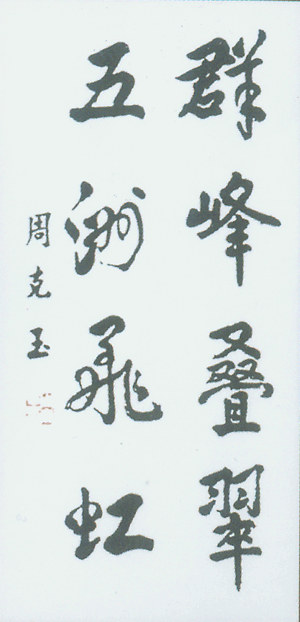 群峰叠翠
五洲飛虹
周克玉